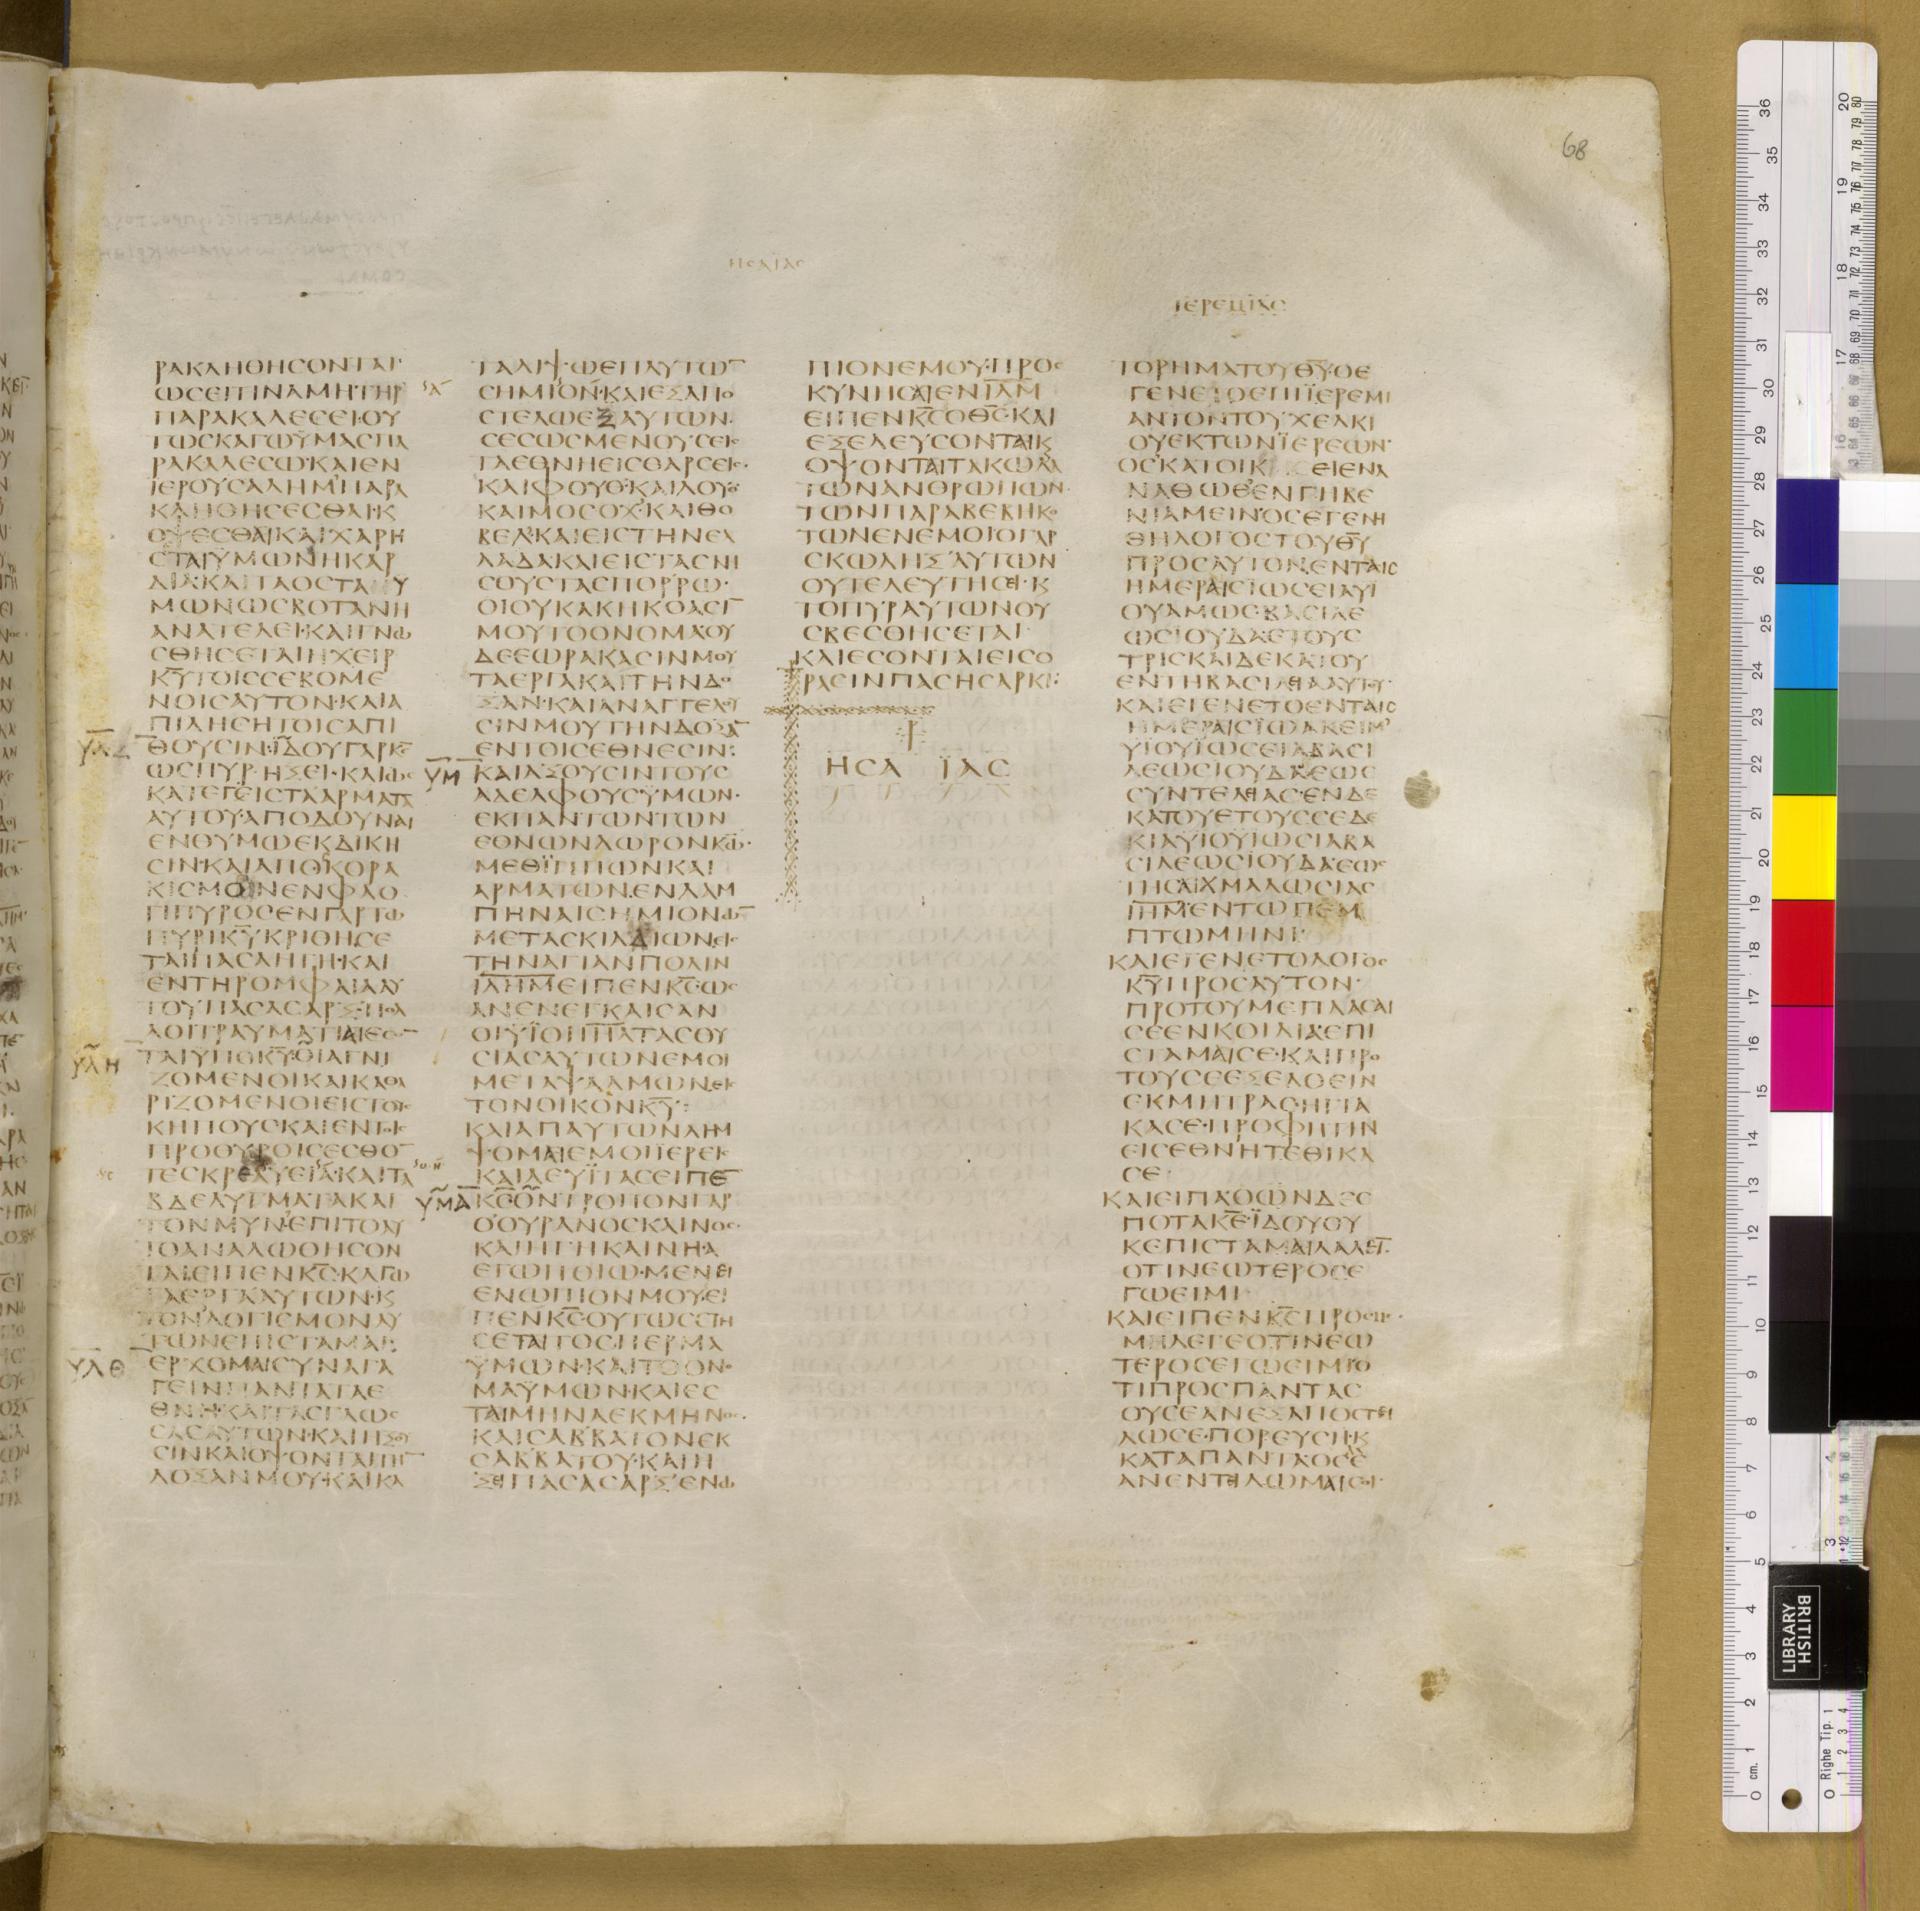 68
ΗСΑΙΑС
ΙΕΡΕΜΙΑС
ΡΑΚΛΗΘΗСΟΝΤΑΙ·
ΩСΕΙΤΙΝΑΜΗΤΗΡ
ΠΑΡΑΚΑΛΕСΕΙ·ΟΥ
ΤΩСΚΑΓΩΫΜΑСΠΑ
ΡΑΚΑΛΕСΩ·ΚΑΙΕΝ
ΙΕΡΟΥСΑΛΗΜΠΑΡΑ
ΚΛΗΘΗСΕСΘΑΙ·Κ
ΟΨΕСΘΑΙΚΑΙΧΑΡΗ
СΤΑΙΫΜΩΝΗΚΑΡ
ΔΙΑ·ΚΑΙΤΑΟСΤΑ Υ
ΜΩΝΩСΒΟΤΑΝΗ
ΑΝΑΤΕΛΕΙ·ΚΑΙΓΝΩ
СΘΗСΕΤΑΙΗΧΕΙΡ
Κ̅Υ̅ΤΟΙССΕΒΟΜΕ
ΝΟΙСΑΥΤΟΝ·ΚΑΙΑ
ΠΙΛΗСΗΤΟΙСΑΠΙ
ΥΛΖ
ΘΟΥСΙΝ·ΪΔΟΥΓΑΡΚ̅С̅
ΩСΠΥΡ·ΗΞΕΙ·ΚΑΙΩС
ΚΑΤΕΓΕΙСΤΑΑΡΜΑΤΑ
ΑΥΤΟΥ·ΑΠΟΔΟΥΝΑΙ
ΕΝΘΥΜΩΕΚΔΙΚΗ
СΙΝ·ΚΑΙΑΠΟСΚΟΡΑ
ΚΙСΜΟΝΕΝΦΛΟ
ΓΙΠΥΡΟСΕΝΓΑΡΤΩ
ΠΥΡΙΚ̅Υ̅ΚΡΙΘΗСΕ
ΤΑΙΠΑСΑΗΓΗ·ΚΑΙ
ΕΝΤΗΡΟΜΦΑΙΑΑΥ
ΤΟΥΠΑСΑСΑΡΞ·ΠΟΛ
ΛΟΙΤΡΑΥΜΑΤΙΑΙΕСΟΝ
ΥΛΗ
ΤΑΙΫΠΟΚ̅Υ̅·ΟΙΑΓΝΙ
ΖΟΜΕΝΟΙΚΑΙΚΑΘΑ
ΡΙΖΟΜΕΝΟΙΕΙСΤΟΥС
ΚΗΠΟΥСΚΑΙΕΝΤΟΙС
ΠΡΟΘΥΡΟΙСΕСΘΟΝ
ΤΕСΚΡΕΑΥΕΙΑ·ΚΑΙΤΑ
ΒΔΕΛΥΓΜΑΤΑΚΑΙ
ΤΟΝΜΥΝΕΠΙΤΟΑΥ
ΤΟΑΝΑΛΩΘΗСΟΝ
ΤΑΙ·ΕΙΠΕΝΚ̅С̅·ΚΑΓΩ
ΤΑΕΡΓΑΑΥΤΩΝ·Κ
ΤΟΝΛΟΓΙСΜΟΝΑΥ
ΤΩΝΕΠΙСΤΑΜΑΙ:
ΥΛΘ
ΕΡΧΟΜΑΙСΥΝΑΓΑ
ΓΕΙΝΠΑΝΤΑΤΑΕ
ΘΝΗ·ΚΑΙΤΑСΓΛΩС
СΑСΑΥΤΩΝ·ΚΑΙΗΞΟΥ
СΙΝΚΑΙΟΨΟΝΤΑΙΤΗΝ
ΔΟΞΑΝΜΟΥ·ΚΑΙΚΑ
ΤΑΛΙΨΩΕΠΑΥΤΩΝ
СΗΜΙΟΝ·ΚΑΙΕΞΑΠΟ
СΤΕΛΩΕΞΑΥΤΩΝ·
СΕСΩСΜΕΝΟΥСΕΙС
ΤΑΕΘΝΗΕΙСΘΑΡСΕΙС·
ΚΑΙΦΟΥΘ·ΚΑΙΛΟΥΔ·
ΚΑΙΜΟСΟΧ·ΚΑΙΘΟ
ΒΕΛ·ΚΑΙΕΙСΤΗΝΕΛ
ΛΑΔΑΚΑΙΕΙСΤΑСΝΗ
СΟΥСΤΑСΠΟΡΡΩ·
ΟΙΟΥΚΑΚΗΚΟΑСΙΝ
ΜΟΥΤΟΟΝΟΜΑΟΥ
ΔΕΕΩΡΑΚΑСΙΝΜΟΥ
ΤΑΕΡΓΑΚΑΙΤΗΝΔΟ
ΞΑΝ·ΚΑΙΑΝΑΓΓΕΛΟΥ
СΙΝΜΟΥΤΗΝΔΟΞΑΝ
ΕΝΤΟΙСΕΘΝΕСΙΝ:
ΥΜ
ΚΑΙΑΞΟΥСΙΝΤΟΥС
ΑΔΕΛΦΟΥСΫΜΩΝ·
ΕΚΠΑΝΤΩΝΤΩΝ
ΕΘΝΩΝΔΩΡΟΝΚ̅Ω̅·
ΜΕΘΪΠΠΩΝΚΑΙ
ΑΡΜΑΤΩΝ·ΕΝΛΑΜ
ΠΗΝΑΙСΗΜΙΟΝΩΝ
ΜΕΤΑСΚΙΑΔΙΩΝΕΙС
ΤΗΝΑΓΙΑΝΠΟΛΙΝ
Ι̅Λ̅Η̅Μ̅ΕΙΠΕΝΚ̅С̅ΩС
ΑΝΕΝΕΓΚΑΙСΑΝ
ΟΙΫΪΟΙΠ̅Π̅ΤΑΤΑСΟΥ
СΙΑСΑΥΤΩΝΕΜΟΙ
ΜΕΤΑΨΑΛΜΩΝΕΙС
ΤΟΝΟΙΚΟΝΚ̅Υ̅:
ΚΑΙΑΠΑΥΤΩΝΛΗΜ
ΨΟΜΑΙΕΜΟΙΪΕΡΕΙС
ΚΑΙΛΕΥΪΤΑСΕΙΠΕΝ
ΥΜΑ
Κ̅С̅ΟΝΤΡΟΠΟΝΓΑΡ
ΟΟΥΡΑΝΟСΚΑΙΝΟС·
ΚΑΙΗΓΗΚΑΙΝΗ·Α
ΕΓΩΠΟΙΩ·ΜΕΝΕΙ
ΕΝΩΠΙΟΝΜΟΥ·ΕΙ
ΠΕΝΚ̅С̅ΟΥΤΩССΤΗ
СΕΤΑΙΤΟСΠΕΡΜΑ
ΫΜΩΝ·ΚΑΙΤΟΟΝΟ
ΜΑΫΜΩΝ·ΚΑΙΕС
ΤΑΙΜΗΝΑΕΚΜΗΝΟС·
ΚΑΙСΑΒΒΑΤΟΝΕΚ
СΑΒΒΑΤΟΥ·ΚΑΙΗ
ΞΕΙΠΑСΑСΑΡΞΕΝΩ
ΠΙΟΝΕΜΟΥ·ΠΡΟС
ΚΥΝΗСΑΙΕΝΙ̅Λ̅Μ̅
ΕΙΠΕΝΚ̅С̅ΟΘ̅С̅·ΚΑΙ
ΕΞΕΛΕΥСΟΝΤΑΙΚ
ΟΨΟΝΤΑΙΤΑΚΩΛΑ
ΤΩΝΑΝΘΡΩΠΩΝ·
ΤΩΝΠΑΡΑΒΕΒΗΚΟ
ΤΩΝΕΝΕΜΟΙΟΓΑΡ
СΚΩΛΗΞΑΥΤΩΝ
ΟΥΤΕΛΕΥΤΗСΕΙ·Κ
ΤΟΠΥΡΑΥΤΩΝΟΥ
СΒΕСΘΗСΕΤΑΙ
ΚΑΙΕСΟΝΤΑΙΕΙСΟ
ΡΑСΙΝΠΑСΗСΑΡΚΙ:
ΗСΑ ΪΑС
ΤΟΡΗΜΑΤΟΥΘ̅Υ̅·ΟΕ
ΓΕΝΕΤΟΕΠΙΪΕΡΕΜΙ
ΑΝΤΟΝΤΟΥΧΕΛΚΙ
ΟΥΕΚΤΩΝΪΕΡΕΩΝ·
ΟСΚΑΤΟΙΚ ΕΙΕΝΑ
ΝΑΘΩΘΕΝΓΗΒΕ
ΝΙΑΜΕΙΝ·ΟСΕΓΕΝΗ
ΘΗΛΟΓΟСΤΟΥΘ̅Υ̅
ΠΡΟСΑΥΤΟΝ·ΕΝΤΑΙС
ΗΜΕΡΑΙСΪΩСΕΙΑΥΪ
ΟΥΑΜΩС·ΒΑСΙΛΕ
ΩСΙΟΥΔΑ·ΕΤΟΥС
ΤΡΙСΚΑΙΔΕΚΑΤΟΥ
ΕΝΤΗΒΑСΙΛΕΙΑΑΥΤΟΥ·
ΚΑΙΕΓΕΝΕΤΟΕΝΤΑΙС
ΗΜΕΡΑΙСΪΩΑΚΕΙΜ
ΥΙΟΥΪΩСΕΙΑΒΑСΙ
ΛΕΩСΙΟΥΔΑ·ΕΩС
СΥΝΤΕΛΙΑС·ΕΝΔΕ
ΚΑΤΟΥΕΤΟΥССΕΔΕ
ΚΙΑΫΙΟΥΪΩСΙΑΒΑ
СΙΛΕΩСΙΟΥΔΑ·ΕΩС
ΤΗСΑΙΧΜΑΛΩСΙΑС
Ι̅Η̅Μ̅ΕΝΤΩΠΕΜ
ΠΤΩΜΗΝΙ·
ΚΑΙΕΓΕΝΕΤΟΛΟΓΟС
Κ̅Υ̅ΠΡΟСΑΥΤΟΝ·
ΠΡΟΤΟΥΜΕΠΛΑСΑΙ
СΕΕΝΚΟΙΛΙΑ·ΕΠΙ
СΤΑΜΑΙСΕ·ΚΑΙΠΡΟ
ΤΟΥСΕΕΞΕΛΘΕΙΝ
ΕΚΜΗΤΡΑС·ΗΓΙΑ
ΚΑСΕ·ΠΡΟΦΗΤΗΝ
ΕΙСΕΘΝΗΤΕΘΙΚΑ
СΕ·
ΚΑΙΕΙΠΑ·ΟΩΝΔΕС
ΠΟΤΑΚ̅Ε̅·ΪΔΟΥΟΥ
ΚΕΠΙСΤΑΜΑΙΛΑΛΕΙΝ·
ΟΤΙΝΕΩΤΕΡΟСΕ
ΓΩΕΙΜΙ
ΚΑΙΕΙΠΕΝΚ̅С̅ΠΡΟСΜΕ·
ΜΗΛΕΓΕΟΤΙΝΕΩ
ΤΕΡΟСΕΓΩΕΙΜΙΌ
ΤΙΠΡΟСΠΑΝΤΑС
ΟΥСΕΑΝΕΞΑΠΟСΤΕΙ
ΛΩСΕ·ΠΟΡΕΥСΗ·Κ
ΚΑΤΑΠΑΝΤΑΟСΕ
ΑΝΕΝΤΙΛΩΜΑΙСΟΙ·
36
35
34
33
32
31
30
29
28
27
26
25
24
23
22
21
20
19
18
17
16
15
14
13
12
11
10
9
8
7
6
5
4
3
2
1
0 cm.
BRITISH
LIBRARY
0 Righe Tip. 1